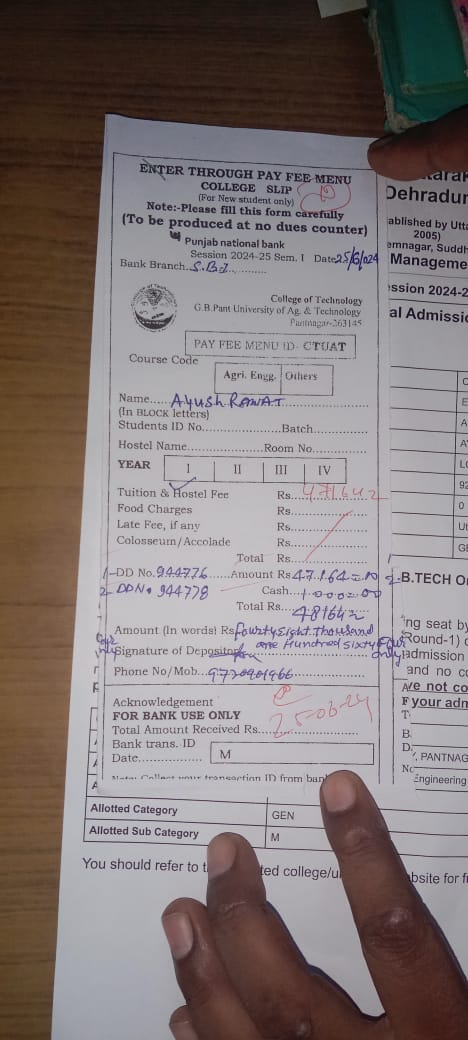 ENTER THROUGH PAY FEE MENU
COLLEGE SLIP
(For New student only)
Note:-Please fill this form carefully
(To be produced at no dues counter)
Punjab national bank
Session 2024-25 Sem. I Date 25/6/024
Bank Branch..S.B.I...........
College of Technology
G.B.Pant University of Ag. & Technology
Pantnagar-263145
PAY FEE MENU ID- CTUAT
Course Code
Agri. Engg. Others
Name.....Ayush RAWAT
(In BLOCK letters)
Students ID No.....................Batch..............
Hostel Name....................Room No..............
YEAR I II III IV
Tuition & Hostel Fee Rs...47164=2
Food Charges Rs.
Late Fee, if any Rs.
Colosseum/Accolade Rs.
Total Rs.
1-DD No.944776 Amount Rs 47164=00
2-DDNo 944778 Cash...1000=00
Total Rs... 48164=
Amount (In words) Rs fourty Eight thousand
one Hundred sixty four
only
Signature of Depositor
Phone No/Mob..9720901966
Acknowledgement
FOR BANK USE ONLY 25-06-24
Total Amount Received Rs....
Bank trans. ID
Date.................. M
Note: Collect your transaction ID from bank
Allotted Category GEN
Allotted Sub Category M
Dehradun
2005)
Manageme
ssion 2024-2
al Admissio
B.TECH
ng seat by
Round-1)
admission
and no co
are not co
your adm
, PANTNAG
Engineering
You should refer to